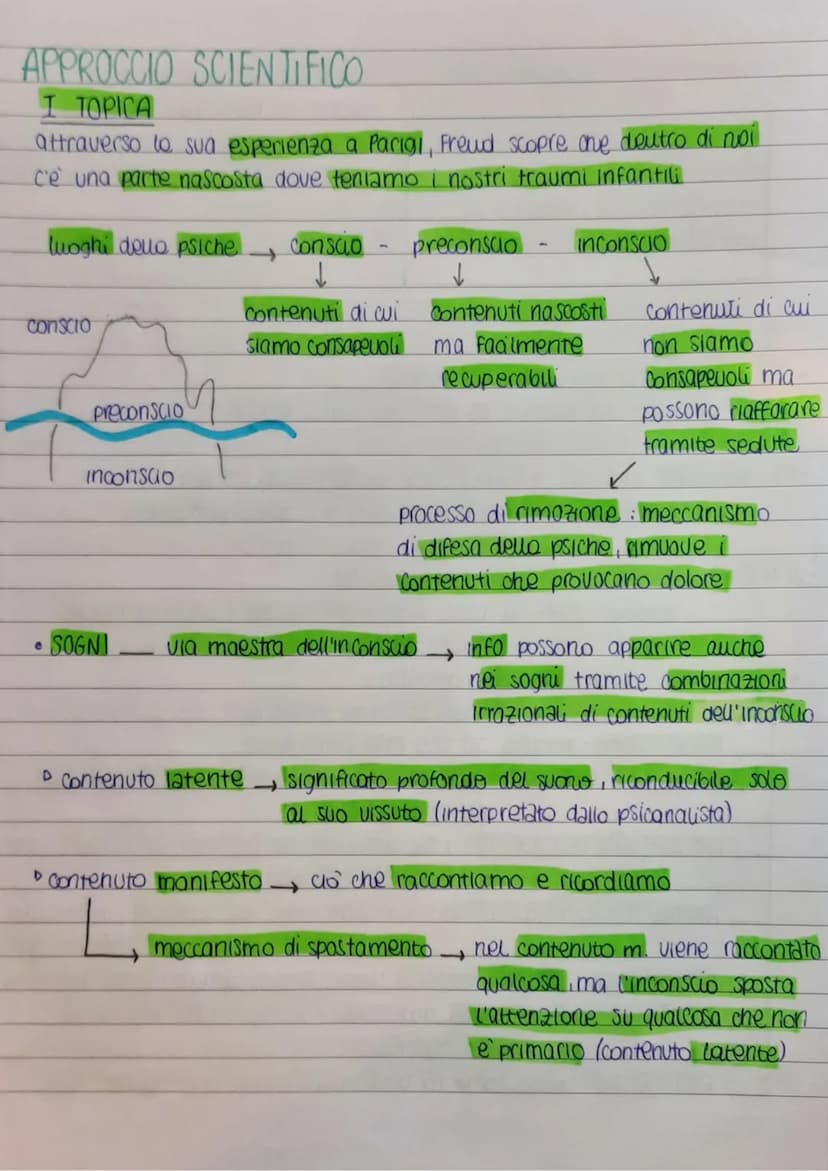 APPROCCIO SCIENTIFICO
I TOPICA
attraverso la sua esperienza a Parigi, Freud scopre che dentro di noi
c'è una parte nascosta dove teniamo i nostri traumi infantili
luoghi della psiche → conscio - preconscio - inconscio
↓ ↓ ↘
conscio
preconscio
inconscio
contenuti di cui
siamo consapevoli
contenuti nascosti
ma facilmente
recuperabili
contenuti di cui
non siamo
consapevoli ma
possono riaffiorare
tramite sedute
↙
processo di rimozione : meccanismo
di difesa della psiche, rimuove i
contenuti che provocano dolore
• SOGNI — via maestra dell'inconscio → info possono apparire anche
nei sogni tramite combinazioni
irrazionali di contenuti dell'inconscio
▷ contenuto latente → significato profondo del suono, riconducibile solo
al suo vissuto (interpretato dallo psicanalista)
▷ contenuto manifesto → ciò che raccontiamo e ricordiamo
↳ meccanismo di spostamento → nel contenuto m. viene raccontato
qualcosa, ma l'inconscio sposta
l'attenzione su qualcosa che non
è primario (contenuto latente)